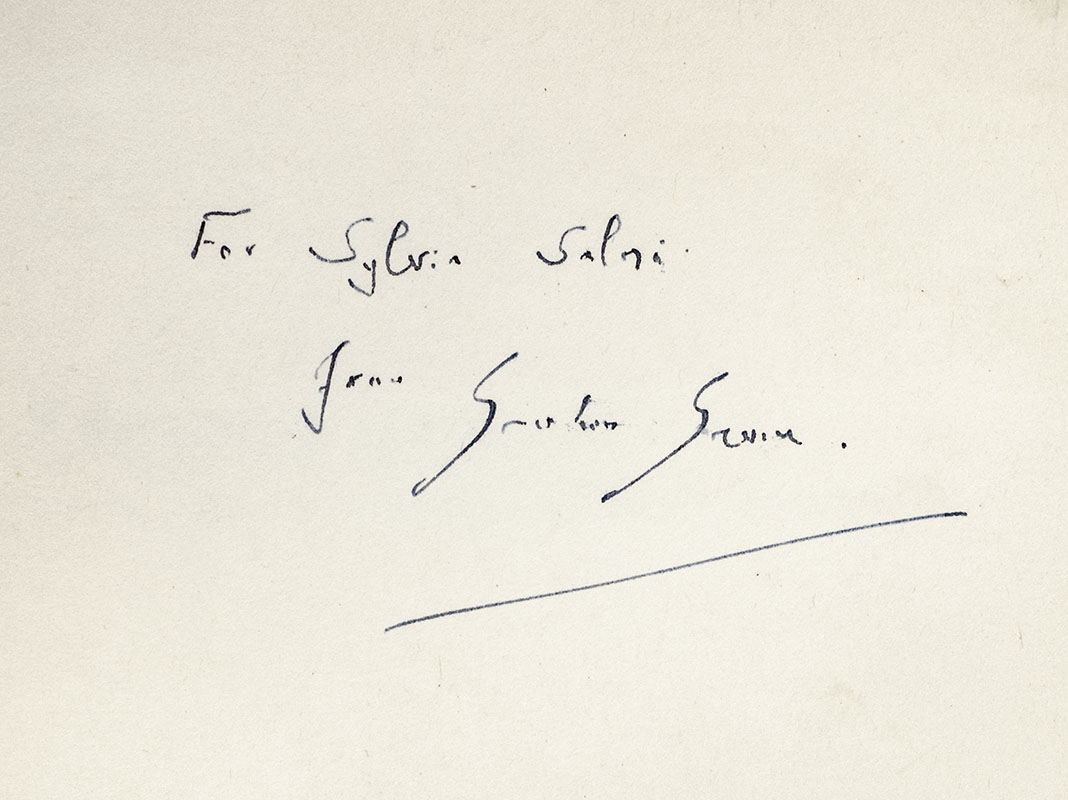 For Sylvia Salmi
from Graham Greene.